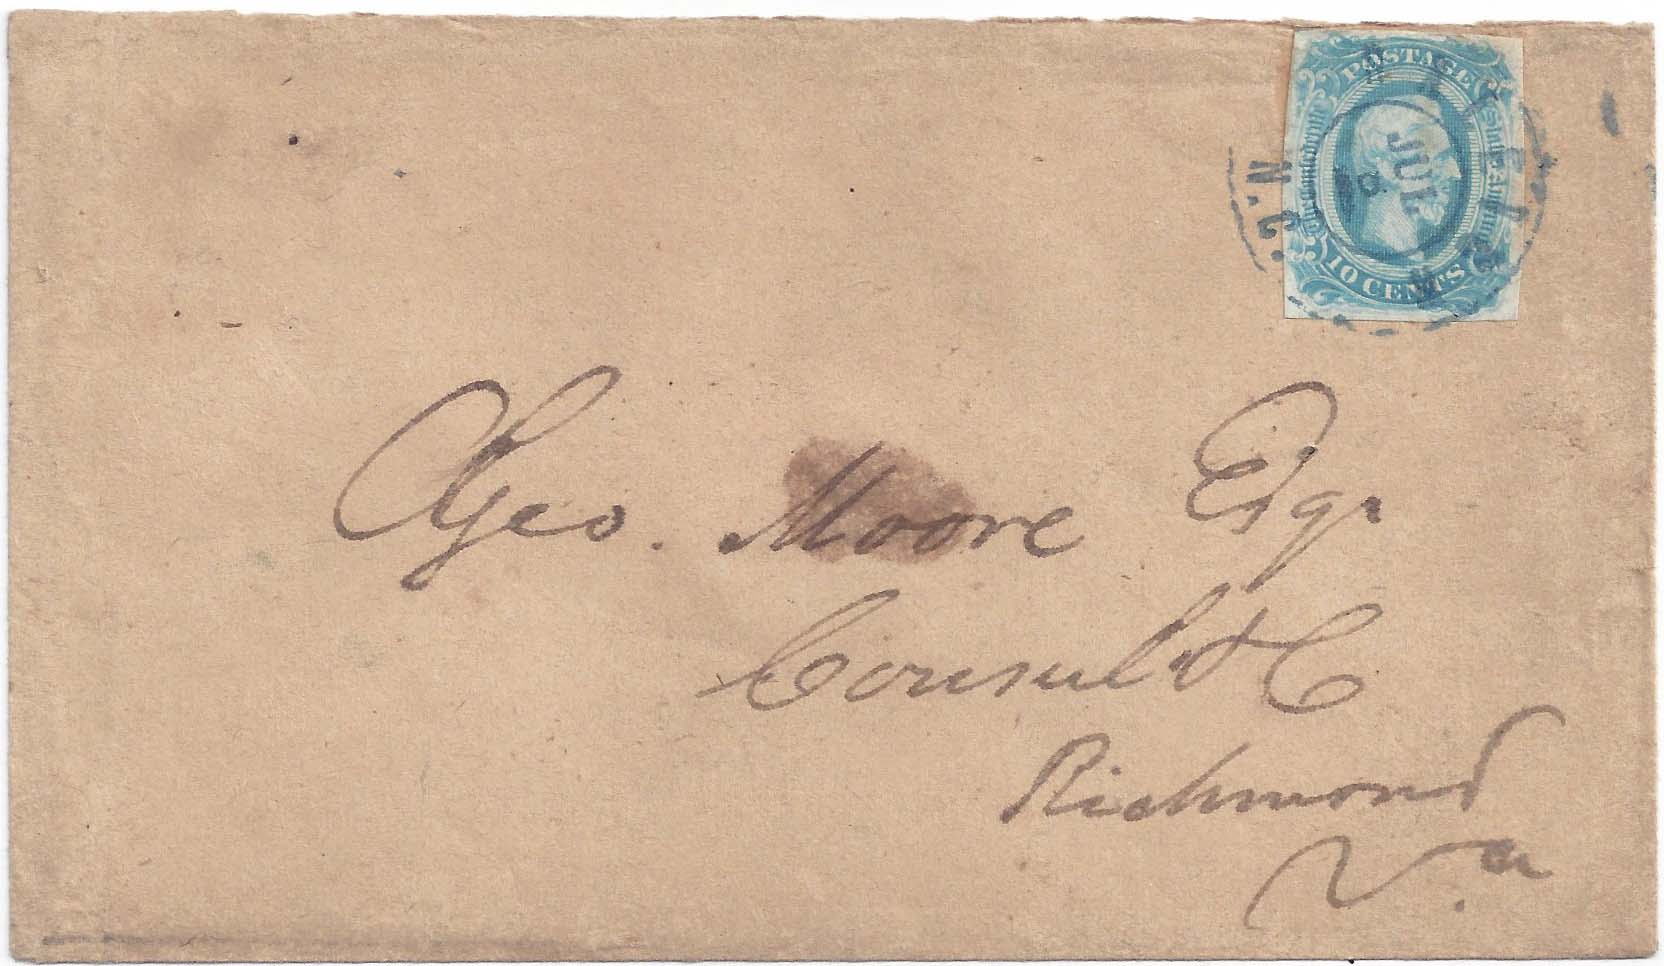 POSTAGE
10 CENTS
JUL
N.C.
Geo. Moore Esqr
Consul &C
Richmond
Va